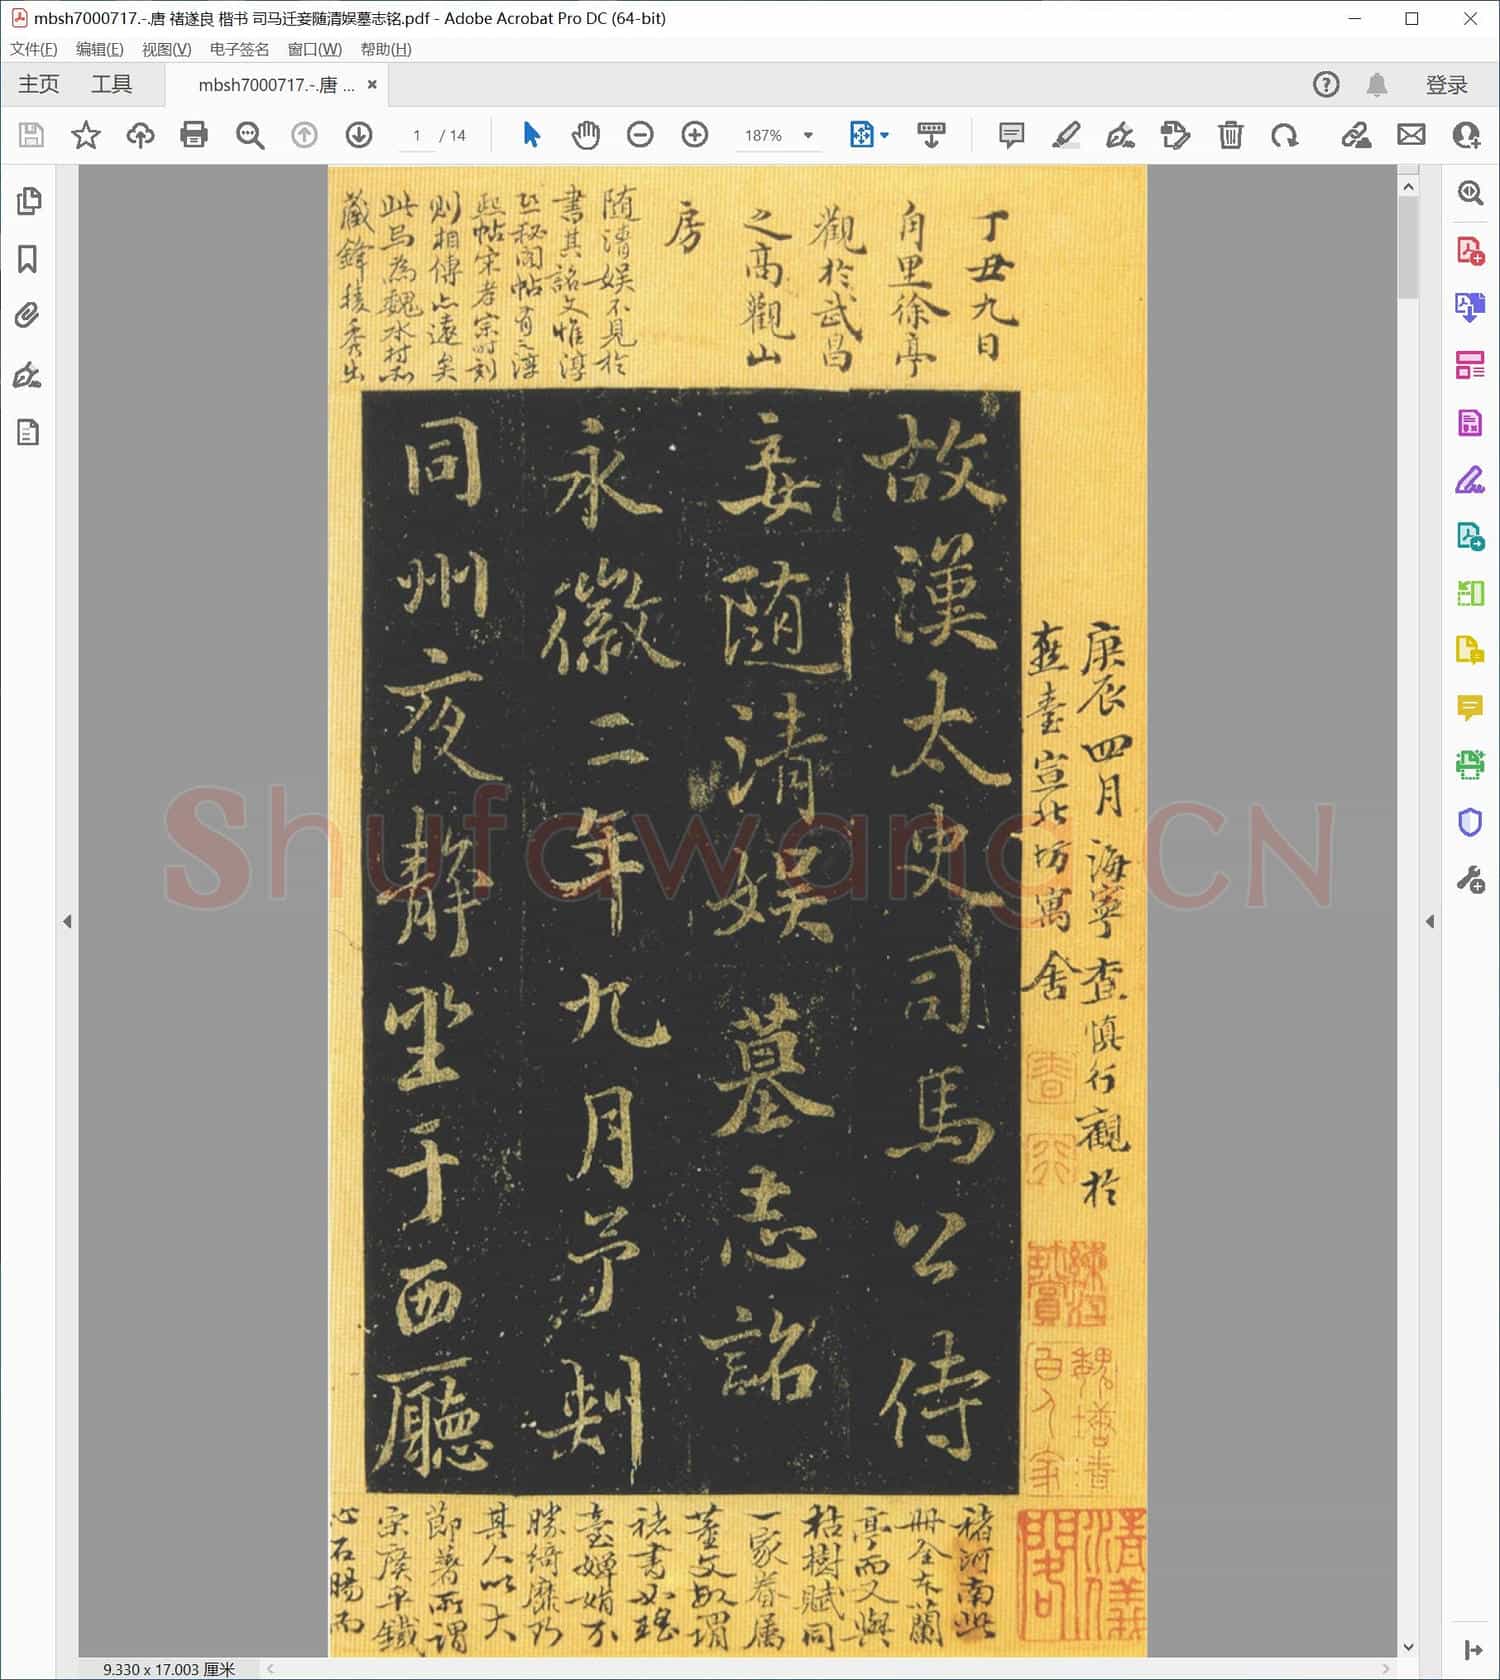 mbsh7000717.-.唐 褚遂良 楷书 司马迁妾随清娱墓志铭.pdf - Adobe Acrobat Pro DC (64-bit)
文件(F) 编辑(E) 视图(V) 电子签名 窗口(W) 帮助(H)
主页 工具 mbsh7000717.-.唐 ... × 登录
1 / 14 187%
丁丑九日
角里徐亭
觀於武昌
之高觀山
房
随清娱不見於
書其銘文惟淳
熙秘閣帖有之淳
熙帖宋孝宗時刻
则相傳亦遠矣
此馬為魏水村所
藏鋒穎秀出
庚辰四月海寧查慎行觀於
燕臺宣北坊寓舍
故漢太史司馬公侍
妾随清娱墓志銘
永徽二年九月予刺
同州夜静坐于西廳
褚河南此
冊全本蘭
亭而又與
枯樹賦同
一家眷属
蓋文敏謂
褚書如瑤
臺嬋娟不
勝綺靡乃
其人以大
節著所謂
宋廣平鐵
心石腸而
Shufawang.CN
9.330 x 17.003 厘米